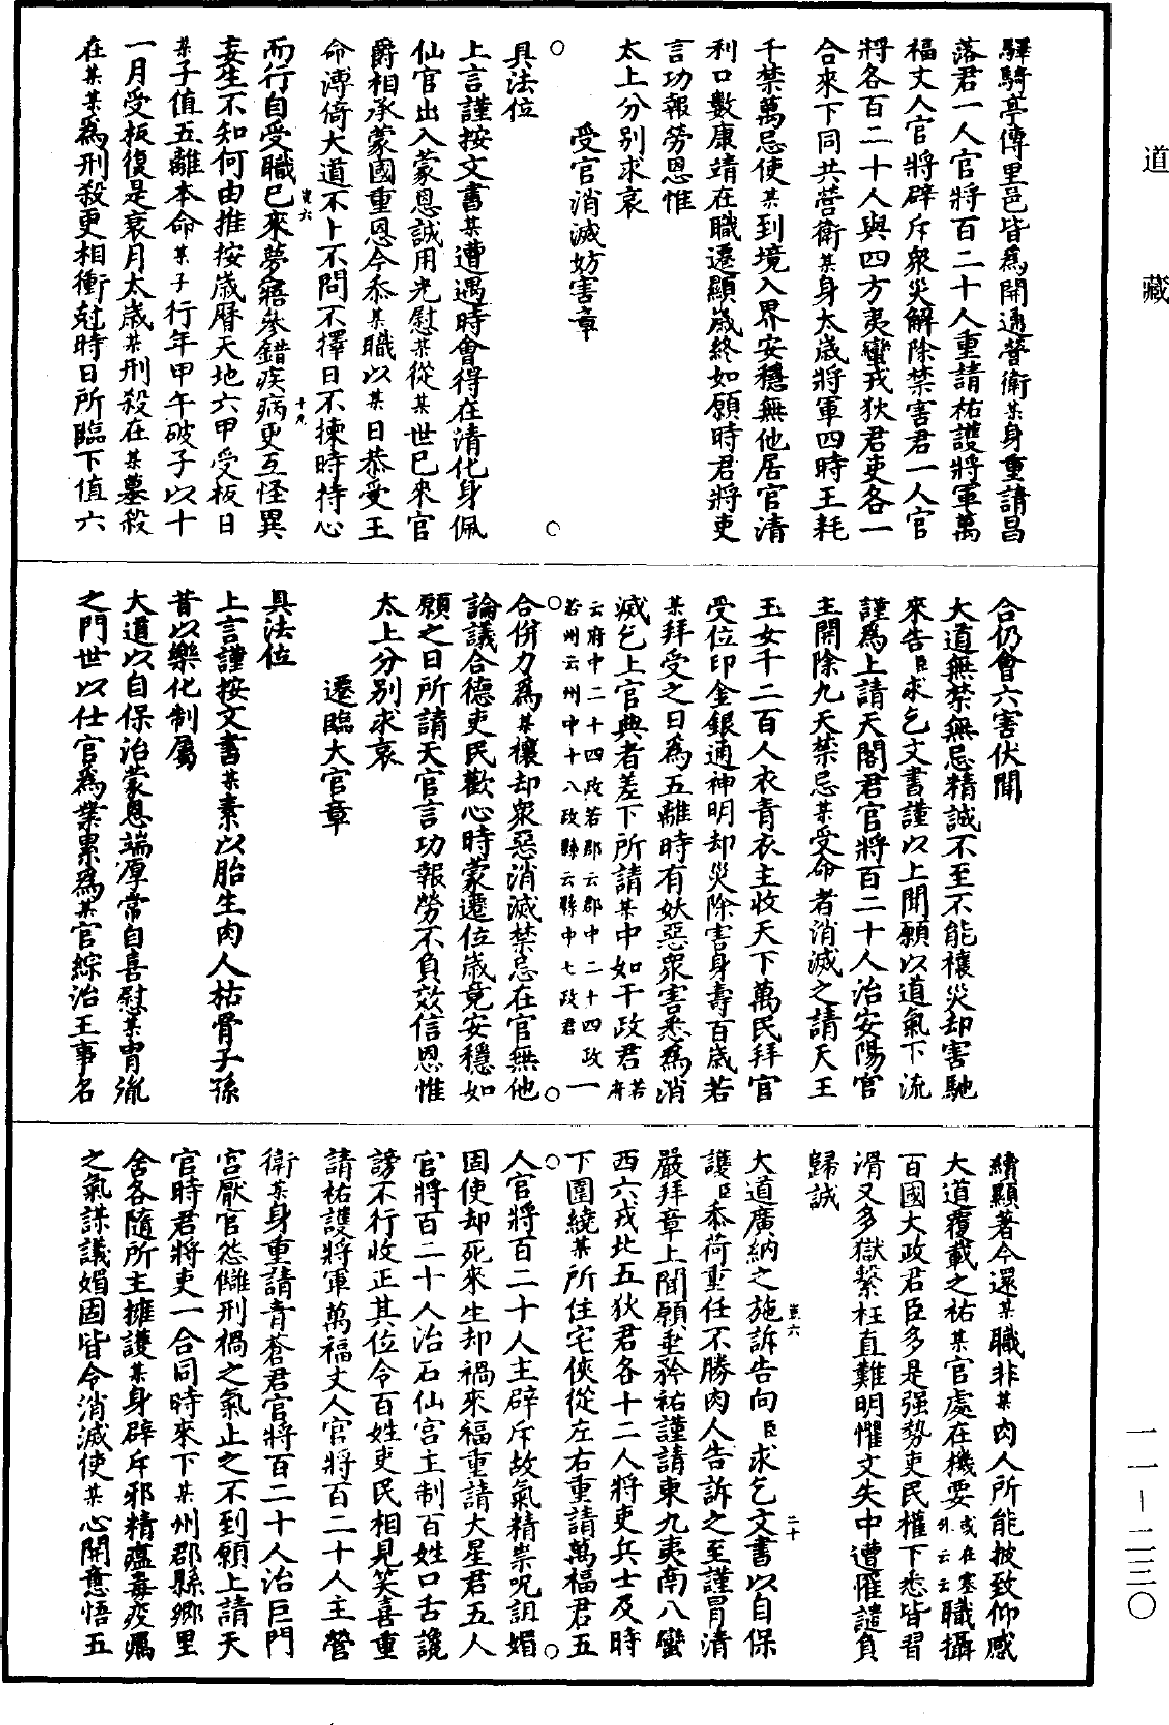 道藏
驛騎亭傳里邑皆爲開通營衛某身重請昌
落君一人官將百二十人重請祐護將軍萬
福丈人官將辟斥衆災解除禁害君一人官
將各百二十人與四方夷蠻戎狄君吏各一
合來下同共營衛某身太歲將軍四時王耗
千禁萬忌使某到境入界安穩無他居官清
利口數康靖在職遷顯歲終如願時君將吏
言功報勞恩惟
太上分別求哀
受官消滅妨害章
具法位
上言謹按文書某遭遇時會得在清化身佩
仙官出入蒙恩誠用光慰某從某世已來官
爵相承蒙國重恩今忝某職以某日恭受王
命漙倚大道不卜不問不擇日不揀時持心
而行自受職已來夢寤參錯疾病更互怪異
妄生不知何由推按歲曆天地六甲受板日
某子值五離本命某子行年甲午破子以十
一月受板復是衰月太歲某刑殺在某墓殺
在某某爲刑殺更相衝尅時日所臨下值六
合仍會六害伏聞
大道無禁無忌精誠不至不能禳災却害馳
來告臣求乞文書謹以上聞願以道氣下流
謹爲上請天閣君官將百二十人治安陽宮
主開除九天禁忌某受命者消滅之請天王
玉女千二百人衣青衣主收天下萬民拜官
受位印金銀通神明却災除害身壽百歲若
某拜受之日爲五離時有妖惡衆害悉爲消
滅乞上官典者差下所請某中如干政君若府
云府中二十四政若郡云郡中二十四政一
若州云州中十八政縣云縣中七政君
合併力爲某禳却衆惡消滅禁忌在官無他
論議合德吏民歡心時蒙遷位歲竟安穩如
願之日所請天官言功報勞不負效信恩惟
太上分別求哀
遷臨大官章
具法位
上言謹按文書某素以胎生肉人枯骨子孫
昔以樂化制屬
大道以自保治蒙恩端厚常自喜慰某胄胤
之門世以仕官爲業累爲某官綜治王事名
績顯著今還某職非某肉人所能披致仰感
大道覆載之祐某官處在機要或在塞外云云職攝
百國大政君臣多是强勢吏民權下悉皆習
滑又多獄繫枉直難明懼文失中遭罹譴負
歸誠
大道廣納之施訴告向臣求乞文書以自保
護臣忝荷重任不勝肉人告訴之至謹冒清
嚴拜章上聞願垂矜祐謹請東九夷南八蠻
西六戎北五狄君各十二人將吏兵士及時
下圍繞某所住宅俠從左右重請萬福君五
人官將百二十人主辟斥故氣精祟呪詛媚
固使却死來生却禍來福重請大星君五人
官將百二十人治石仙宮主制百姓口舌讒
謗不行收正其位令百姓吏民相見笑喜重
請祐護將軍萬福丈人官將百二十人主營
衛某身重請青蒼君官將百二十人治巨門
宮厭官怨讎刑禍之氣止之不到願上請天
官時君將吏一合同時來下某州郡縣鄉里
舍各隨所主擁護某身辟斥邪精瘟毒疫癘
之氣謀議媚固皆令消滅使某心開意悟五
一一—二三〇